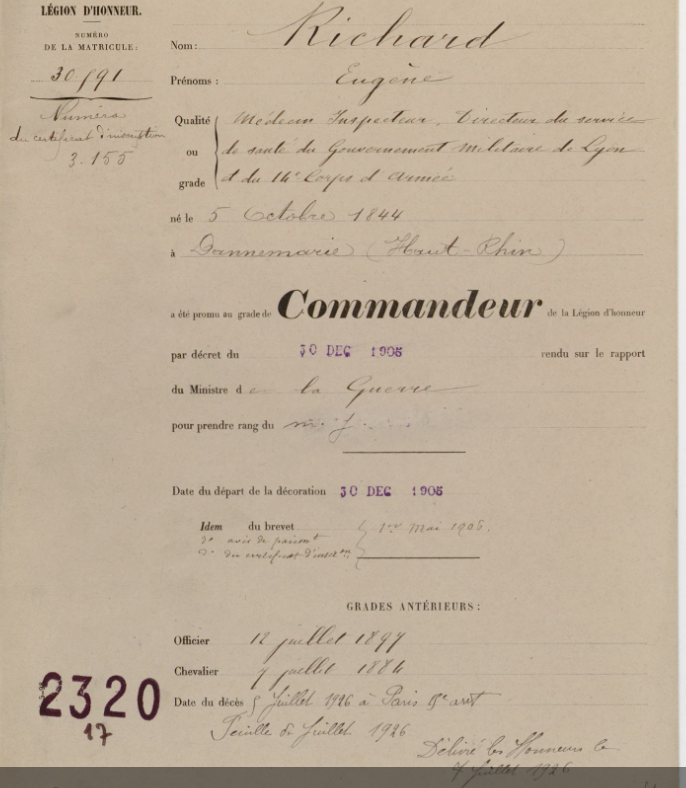 LÉGION D'HONNEUR.
NUMÉRO
DE LA MATRICULE:
30.891
Numéro
du certificat d'inscription
3.155
Nom: Richard
Prénoms: Eugène
Qualité Médecin Inspecteur, Directeur du service
ou de santé du Gouvernement Militaire de Lyon
grade et du 14e Corps d'Armée
né le 5 Octobre 1844
à Dannemarie (Haut-Rhin)
a été promu au grade de Commandeur de la Légion d'honneur
par décret du 30 DEC 1905 rendu sur le rapport
du Ministre de la Guerre
pour prendre rang du m. j.
Date du départ de la décoration 30 DEC 1905
Idem du brevet 1er Mai 1906.
do avis de paiement
do du certificat d'inscr on
GRADES ANTÉRIEURS:
Officier 12 juillet 1897
Chevalier 7 juillet 1884
Date du décès 5 Juillet 1926 à Paris arrt
Feuille de Juillet 1926
Délivré les Honneurs le
7 Juillet 1926
2320
17